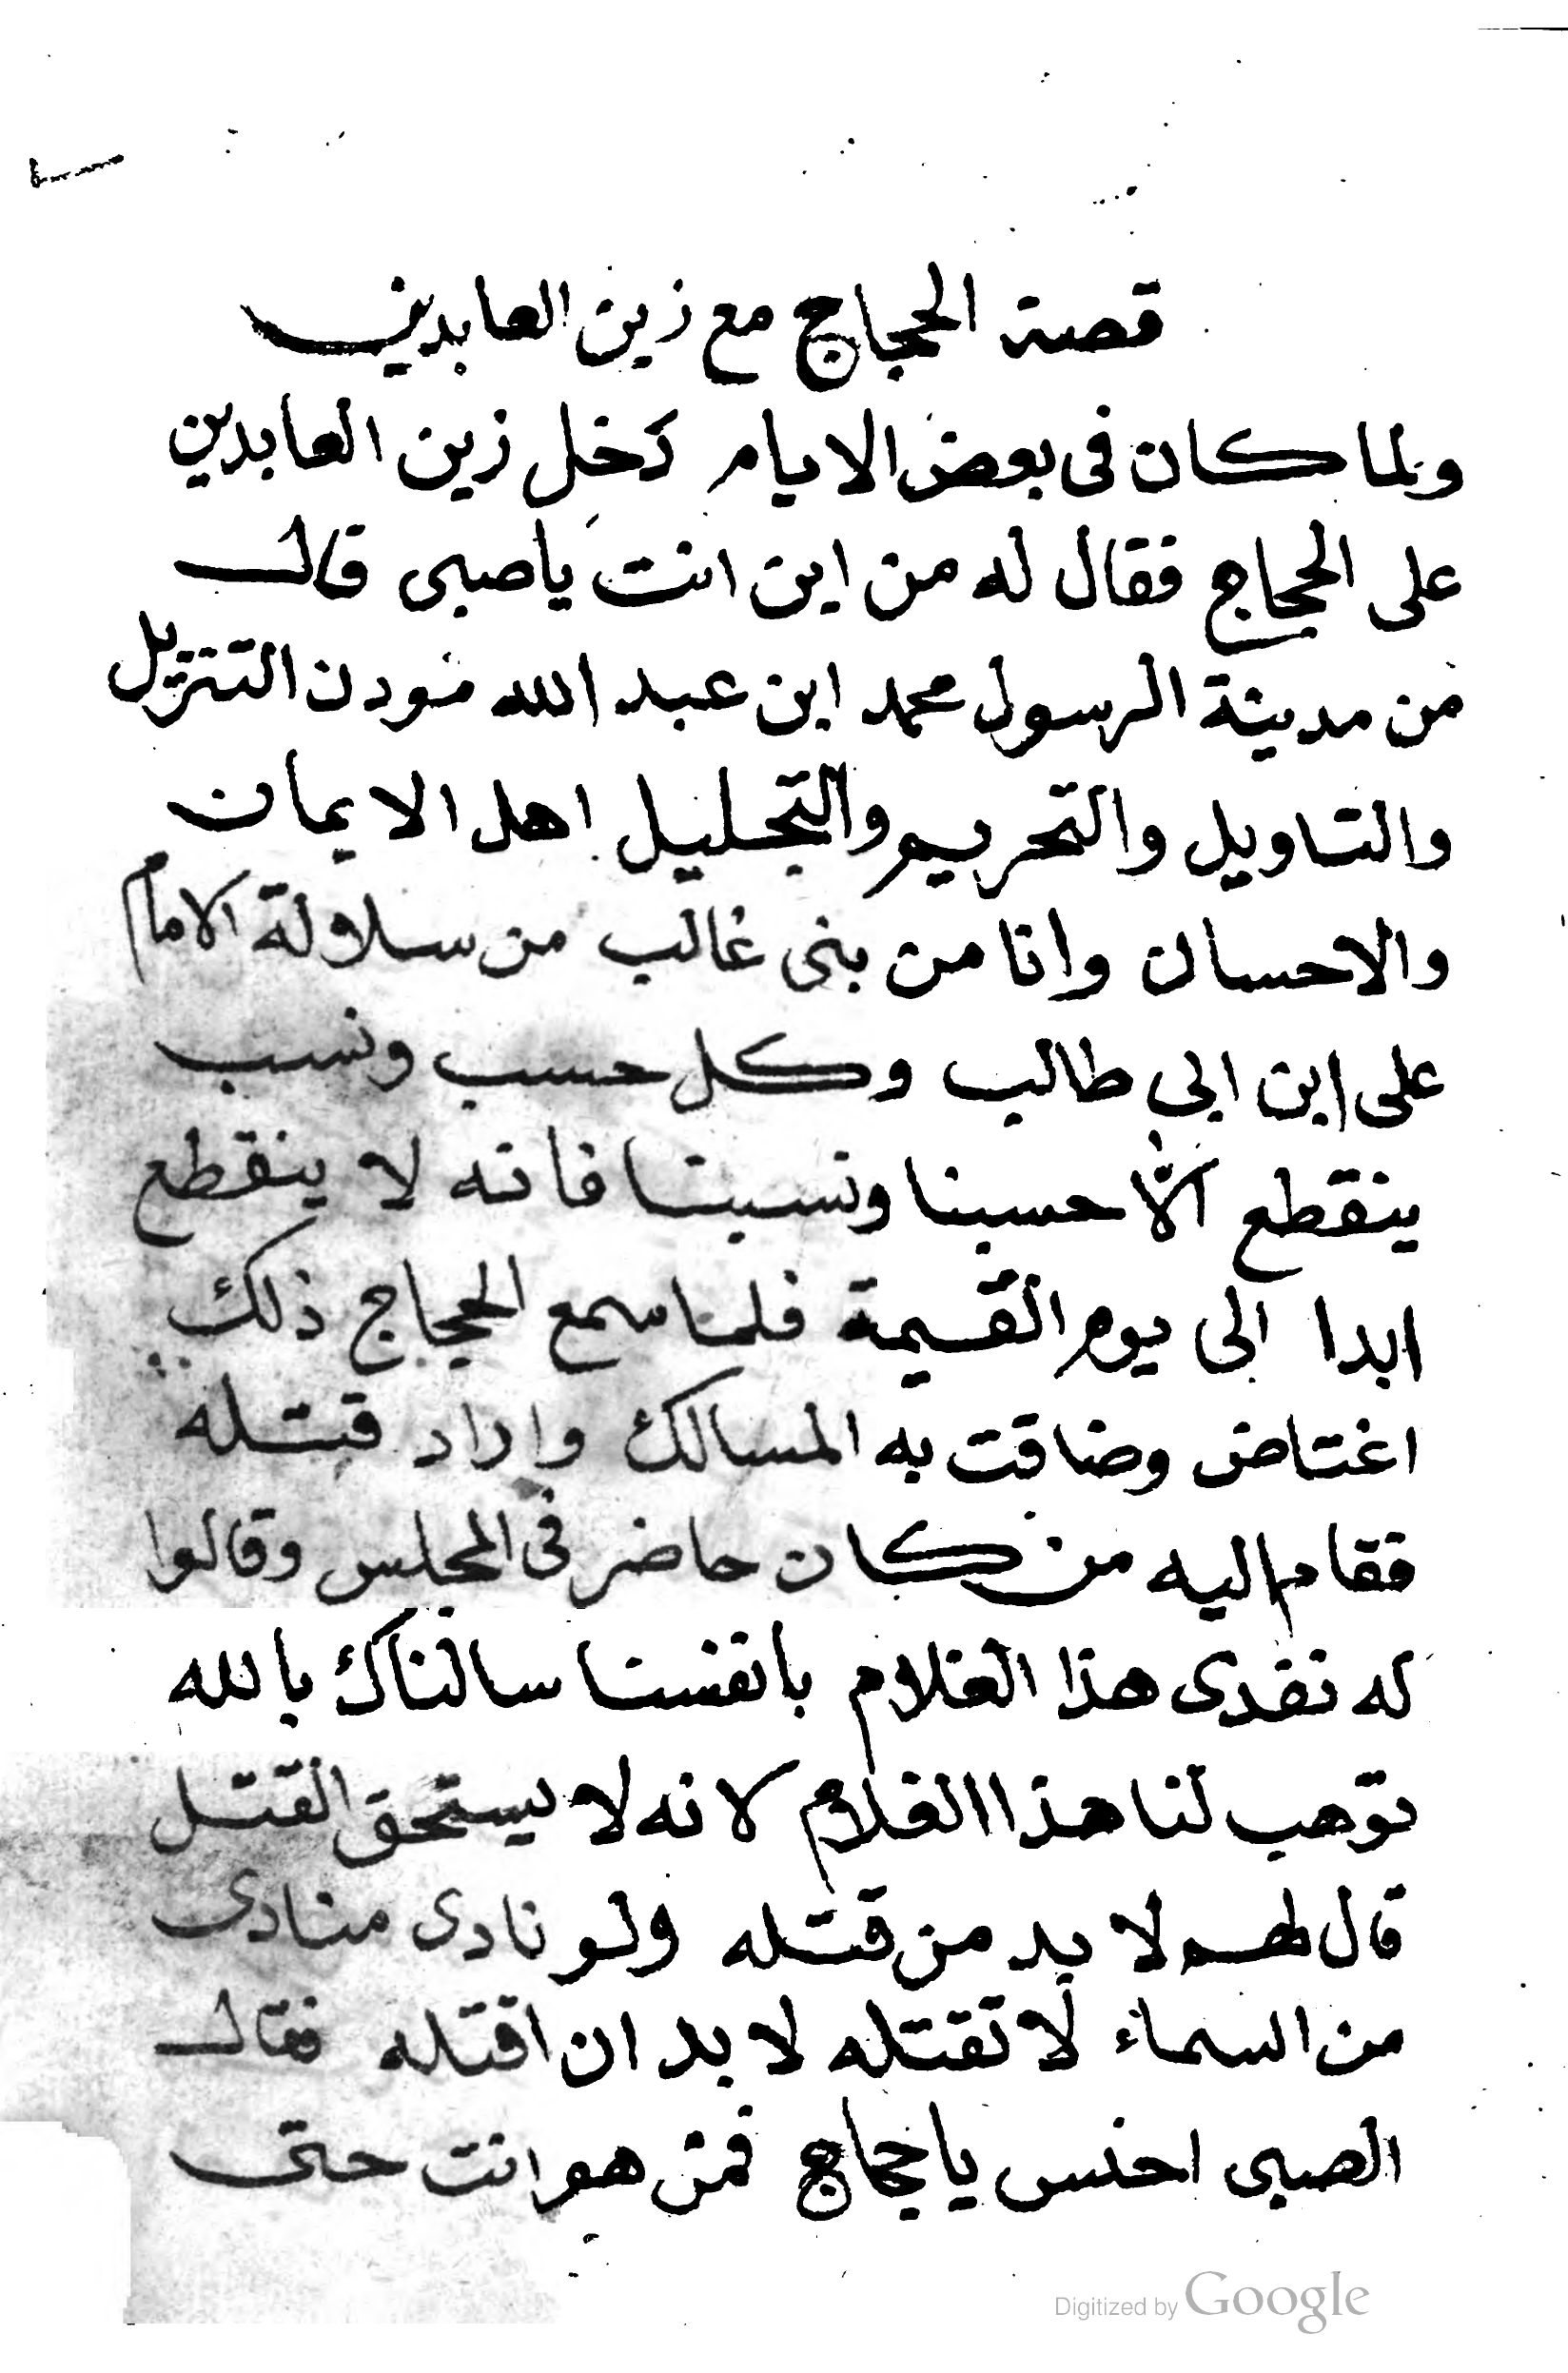 قصة الحجاج مع زين العابدين
ولما كان فى بعض الايام دخل زين العابدين
على الحجاج فقال له من اين انت ياصبى قال
من مدينة الرسول محمد ابن عبد الله التنزيل
والتاويل والتحريم والتجليل اهل الايمان
والاحسان وانا من بنى غالب من سلالة الامام
على ابن ابي طالب وكل حسب ونسب
ينقطع الا حسبنا ونسبنا فانه لا ينقطع
ابدا الى يوم القيمة فلما سمع الحجاج ذلك
اغتاض وضاقت به المسالك واراد قتله
فقام اليه من كان حاضر فى المجلس وقالوا
له نفدى هذا الغلام بانفسنا سالناك بالله
توهب لنا هذا الغلام لانه لا يستحق القتل
قال لهم لا بد من قتله ولو نادى منادى
من السماء لا تقتله لا بد ان اقتله فقال
الصبى اخنس ياحجاج فمن هو انت حتى
Digitized by Google